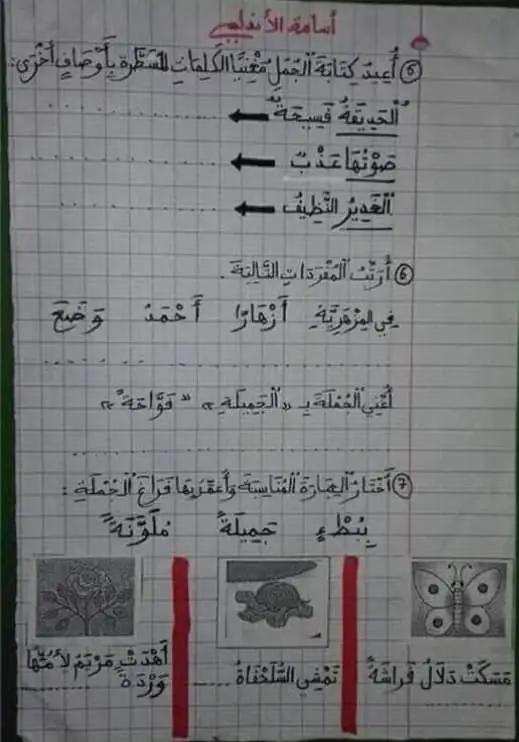 أسامة الأندلسي
⑤ أُعِيدُ كِتَابَةَ الْجُمَلِ مُغْنِيًا الْكَلِمَاتِ الْمُسَطَّرَةِ بِأَوْصَافٍ أُخْرَى:
الْحَدِيقَةُ فَسِيحَةٌ ← ..............
صَوْتُهَا عَذْبٌ ← ..............
الْغَدِيرُ النَّظِيفُ ← ..............
⑥ أُرَتِّبُ الْمُفْرَدَاتِ التَّالِيَةَ .
فِي الْمِزْهَرِيَّةِ أَزْهَارًا أَحْمَدُ وَضَعَ
..............
أُغْنِي الْجُمْلَةَ بِـ «الْجَمِيلَةِ» «فَوَّاحَةً»
..............
⑦ أَخْتَارُ الْعِبَارَةَ الْمُنَاسِبَةَ وَأُعَمِّرُ بِهَا فَرَاغَ الْجُمْلَةِ :
بِبُطْءٍ جَمِيلَةً مُلَوَّنَةً
مَسَكَتْ دَلَالُ فَرَاشَةً ..........
تَمْشِي السُّلَحْفَاةُ ..........
أَهْدَتْ مَرْيَمُ لِأُمِّهَا
وَرْدَةً ..........